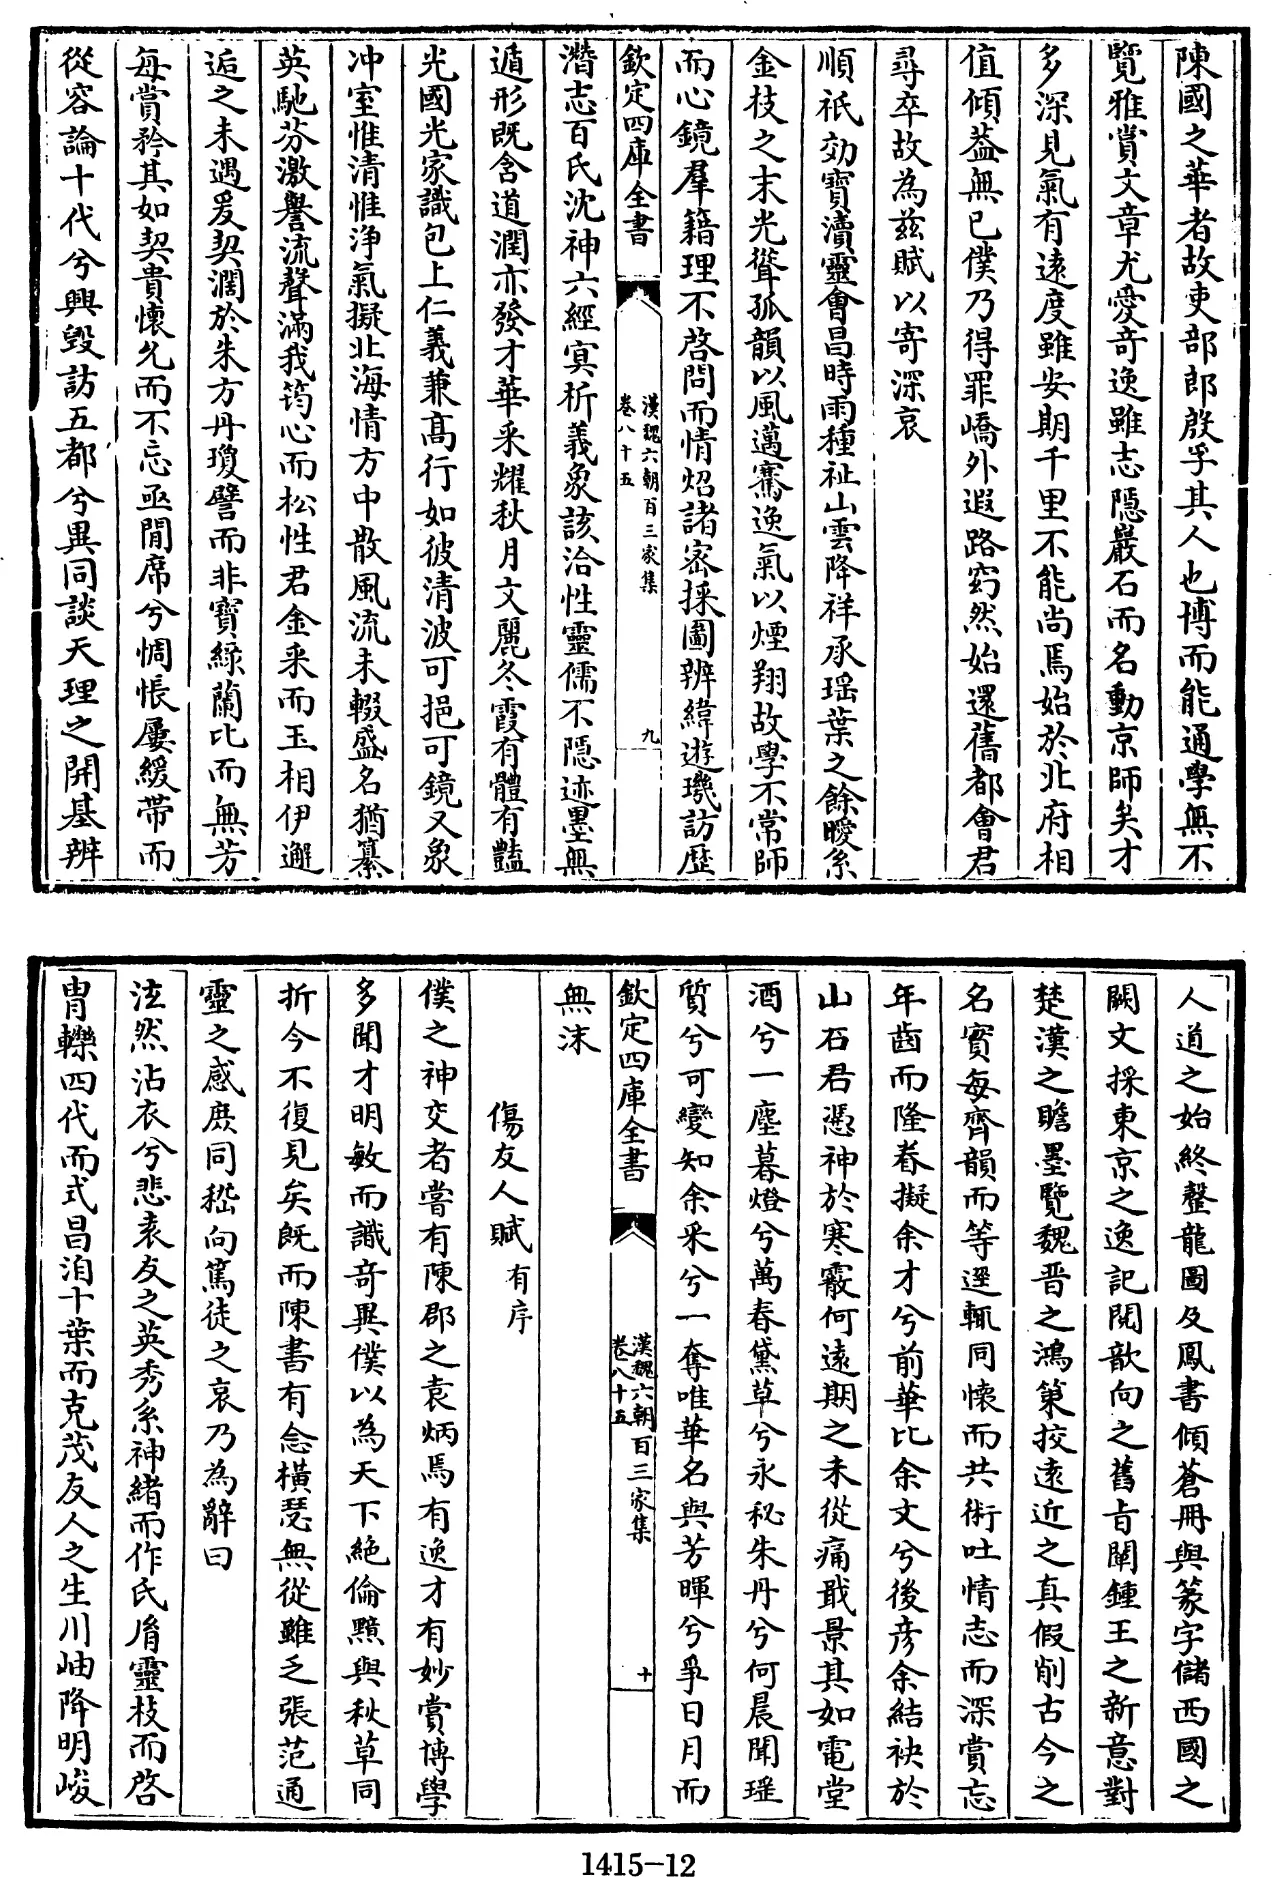 陳國之華者故吏部郎殷孚其人也博而能通學無不
覽雅賞文章尤愛奇逸雖志隱巖石而名動京師矣才
多深見氣有遠度雖安期千里不能尚焉始於北府相
值傾蓋無已僕乃得罪嶠外遐路窈然始還舊都會君
尋卒故為兹賦以寄深哀
順祇効寶瀆靈會昌時雨種祉山雲降祥承瑶葉之餘曖系
金枝之末光聳孤韻以風邁騫逸氣以煙翔故學不常師
而心鏡羣籍理不啓問而情炤諸密採圖辨緯遊璣訪歴
欽定四庫全書
漢魏六朝百三家集
卷八十五
九
潛志百氏沈神六經㝠析義象該洽性靈儒不隱迹墨無
遁形既含道潤亦發才華采耀秋月文麗冬霞有體有豔
光國光家識包上仁義兼高行如彼清波可挹可鏡又象
冲室惟清惟淨氣擬北海情方中散風流未輟盛名猶纂
英馳芬激譽流聲滿我筠心而松性君金采而玉相伊邂
逅之未遇爰契濶於朱方丹瓊譬而非寳緑蘭比而無芳
每賞矜其如契貴懷允而不忘亟閒席兮惆悵屢緩帶而
從容論十代兮興毀訪五都兮異同談天理之開基辨
人道之始終整龍圖及鳳書傾蒼冊與篆字儲西國之
闕文採東京之逸記閲歆向之舊旨闡鍾王之新意對
楚漢之贍墨覽魏晉之鴻策挍遠近之真假削古今之
名實每齊韻而等逕輒同懷而共術吐情志而深賞忘
年齒而隆眷擬余才兮前華比余文兮後彦余結袂於
山石君憑神於寒霰何遠期之未從痛戢景其如電堂
酒兮一塵暮燈兮萬春黛草兮永秘朱丹兮何晨聞瑶
質兮可變知余采兮一奪唯華名與芳暉兮爭日月而
欽定四庫全書
漢魏六朝百三家集
卷八十五
十
無沬
傷友人賦有序
僕之神交者嘗有陳郡之袁炳焉有逸才有妙賞博學
多聞才明敏而識奇異僕以為天下絶倫黯與秋草同
折今不復見矣既而陳書有念橫瑟無從雖乏張范通
靈之感庶同嵇向篤徒之哀乃為辭曰
泫然沾衣兮悲袁友之英秀系神緒而作氏胤靈枝而啓
胄轢四代而式昌洎十葉而克茂友人之生川岫降明峻
1415-12